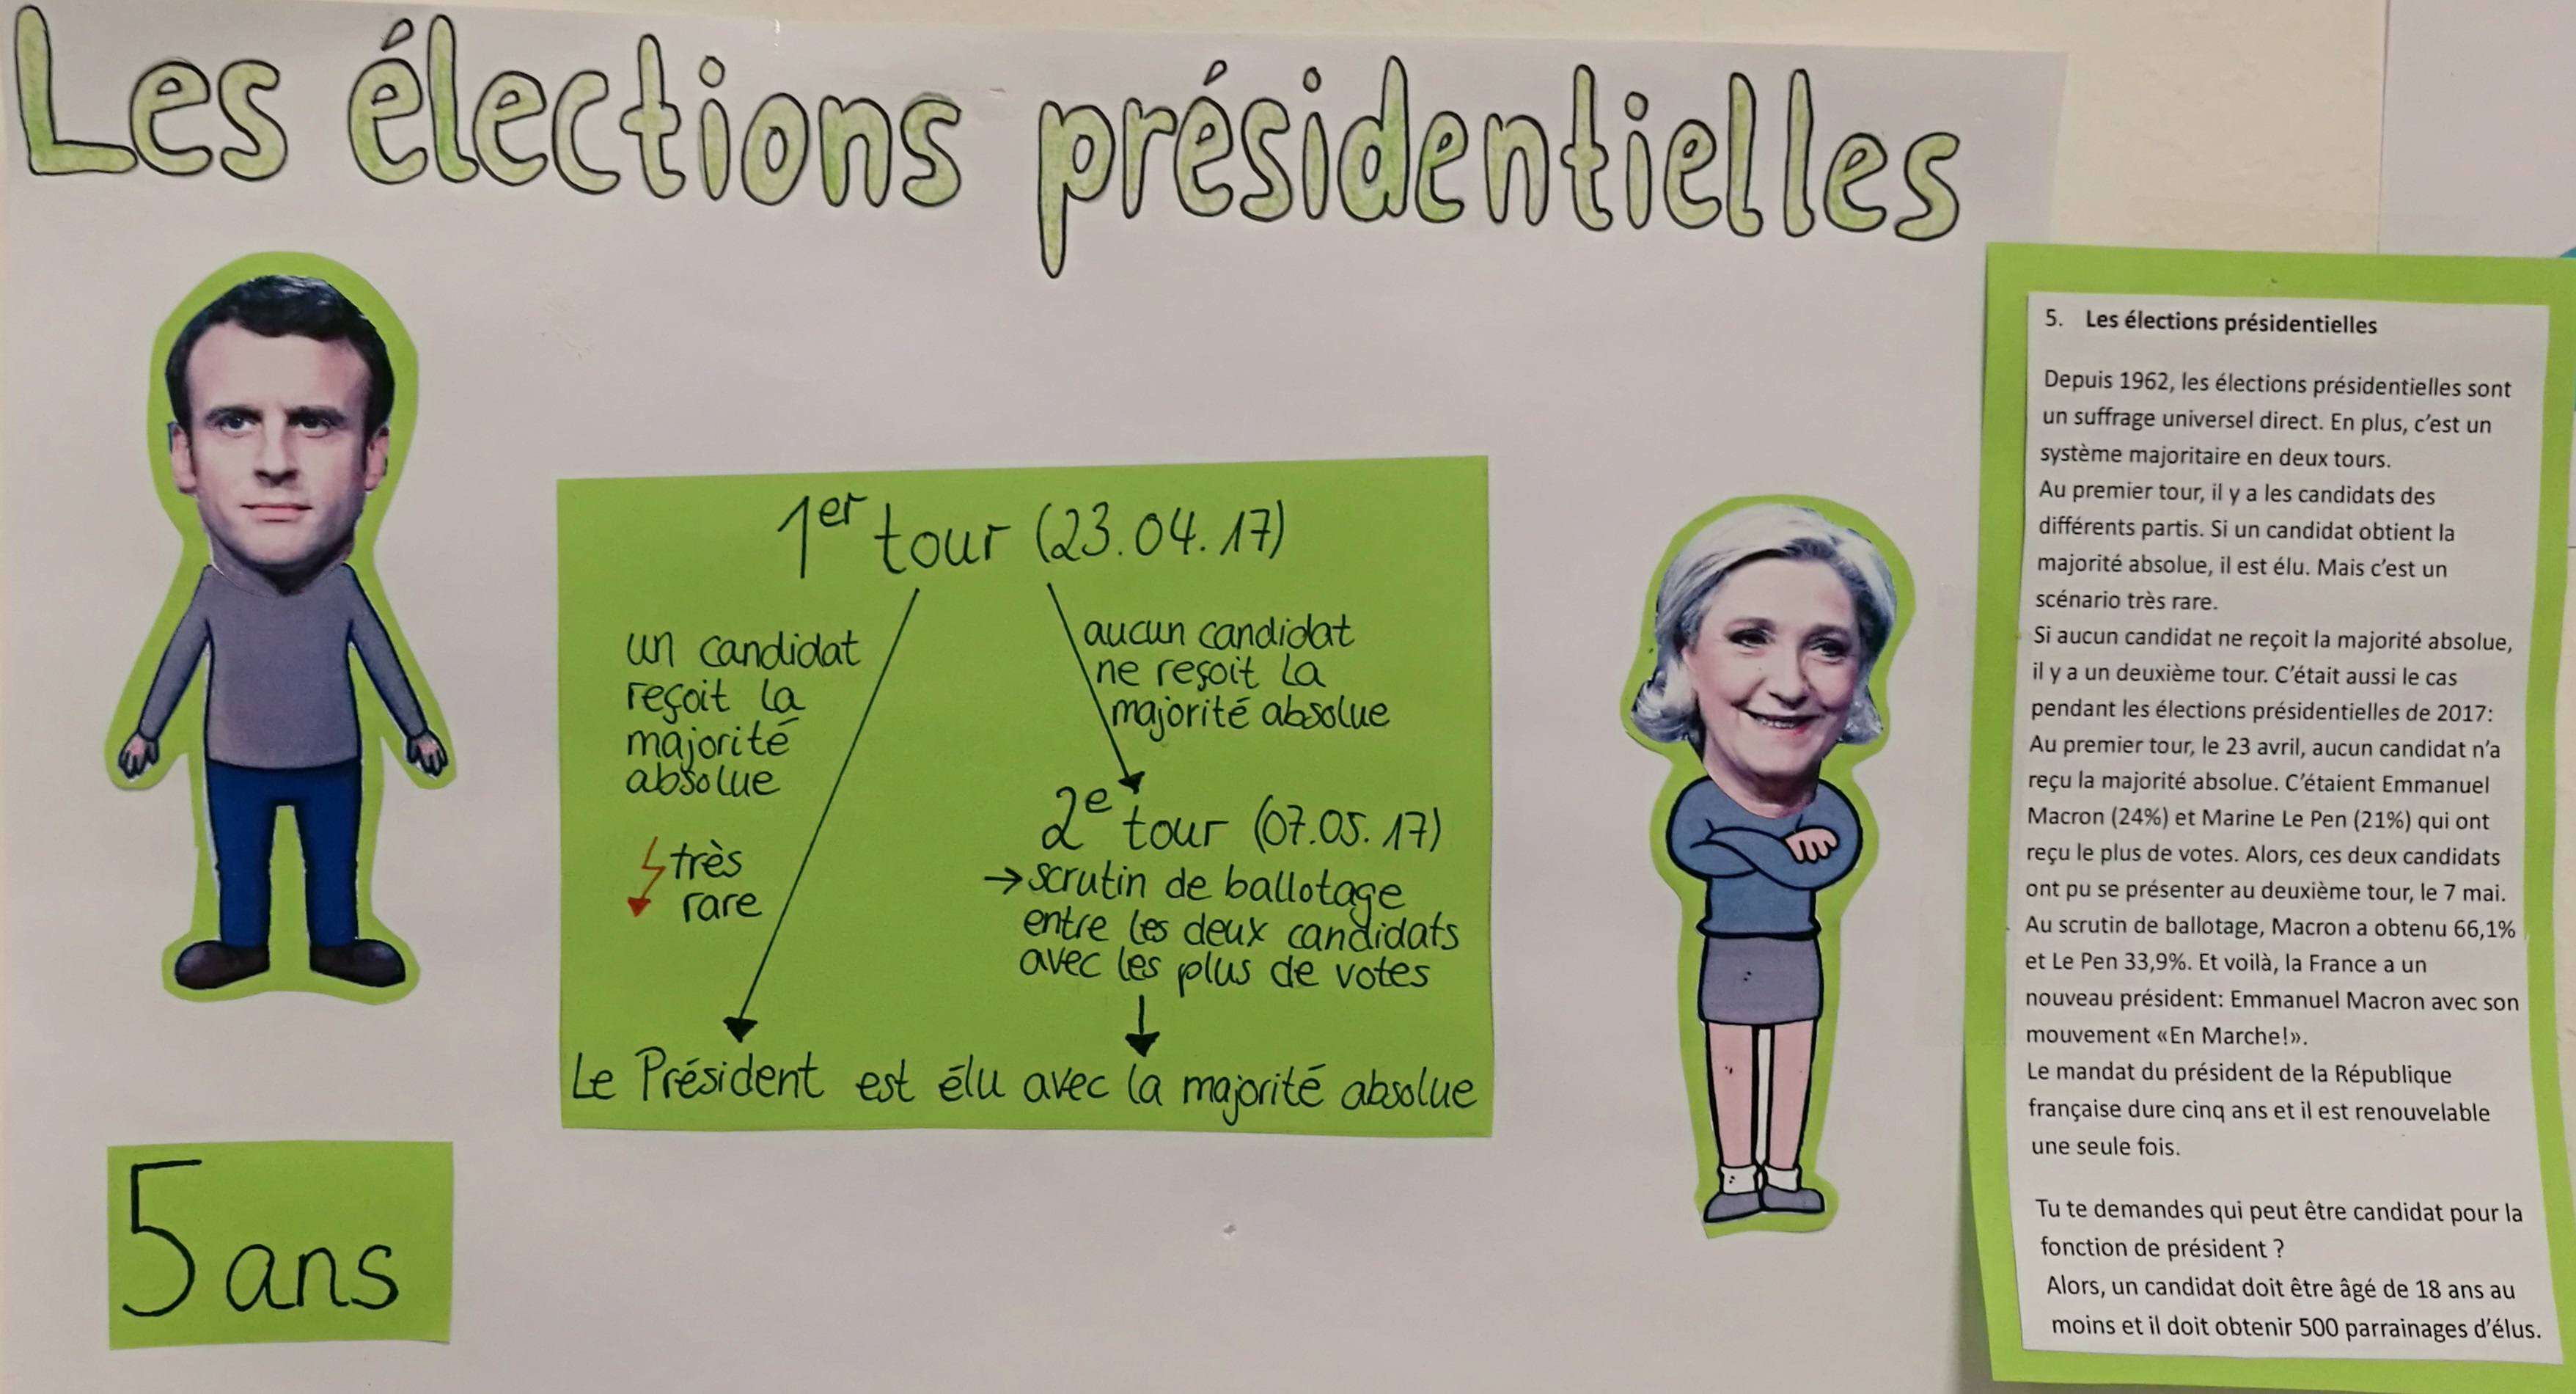 Les élections présidentielles
1er tour (23.04.17)
un candidat
reçoit la
majorité
absolue
très
rare
aucun candidat
ne reçoit la
majorité absolue
2e tour (07.05.17)
→ scrutin de ballotage
entre les deux candidats
avec les plus de votes
Le Président est élu avec la majorité absolue
5 ans
5. Les élections présidentielles
Depuis 1962, les élections présidentielles sont
un suffrage universel direct. En plus, c’est un
système majoritaire en deux tours.
Au premier tour, il y a les candidats des
différents partis. Si un candidat obtient la
majorité absolue, il est élu. Mais c’est un
scénario très rare.
Si aucun candidat ne reçoit la majorité absolue,
il y a un deuxième tour. C’était aussi le cas
pendant les élections présidentielles de 2017:
Au premier tour, le 23 avril, aucun candidat n’a
reçu la majorité absolue. C’étaient Emmanuel
Macron (24%) et Marine Le Pen (21%) qui ont
reçu le plus de votes. Alors, ces deux candidats
ont pu se présenter au deuxième tour, le 7 mai.
Au scrutin de ballotage, Macron a obtenu 66,1%
et Le Pen 33,9%. Et voilà, la France a un
nouveau président: Emmanuel Macron avec son
mouvement «En Marche!».
Le mandat du président de la République
française dure cinq ans et il est renouvelable
une seule fois.
Tu te demandes qui peut être candidat pour la
fonction de président ?
Alors, un candidat doit être âgé de 18 ans au
moins et il doit obtenir 500 parrainages d’élus.